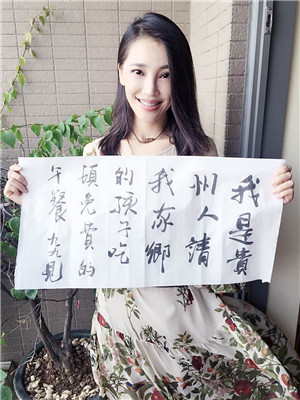 我是貴
州人請
我家鄉
的孩子吃
頓免費的
午餐九九見